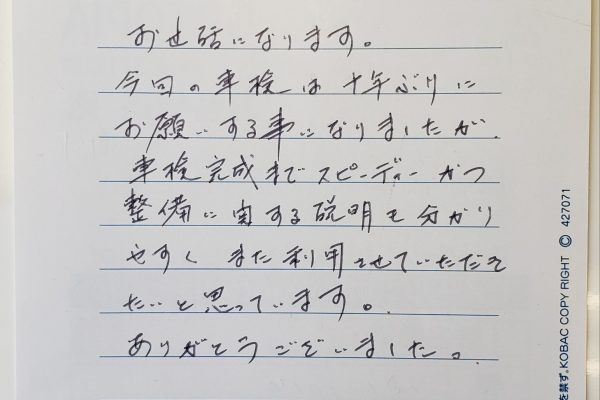 お世話になります。
今回の車検は十年ぶりに
お願いする事になりましたが、
車検完成までスピーディーかつ
整備に関する説明も分かり
やすく また利用させていただき
たいと思っています。
ありがとうございました。
を禁ず。KOBAC COPY RIGHT © 427071